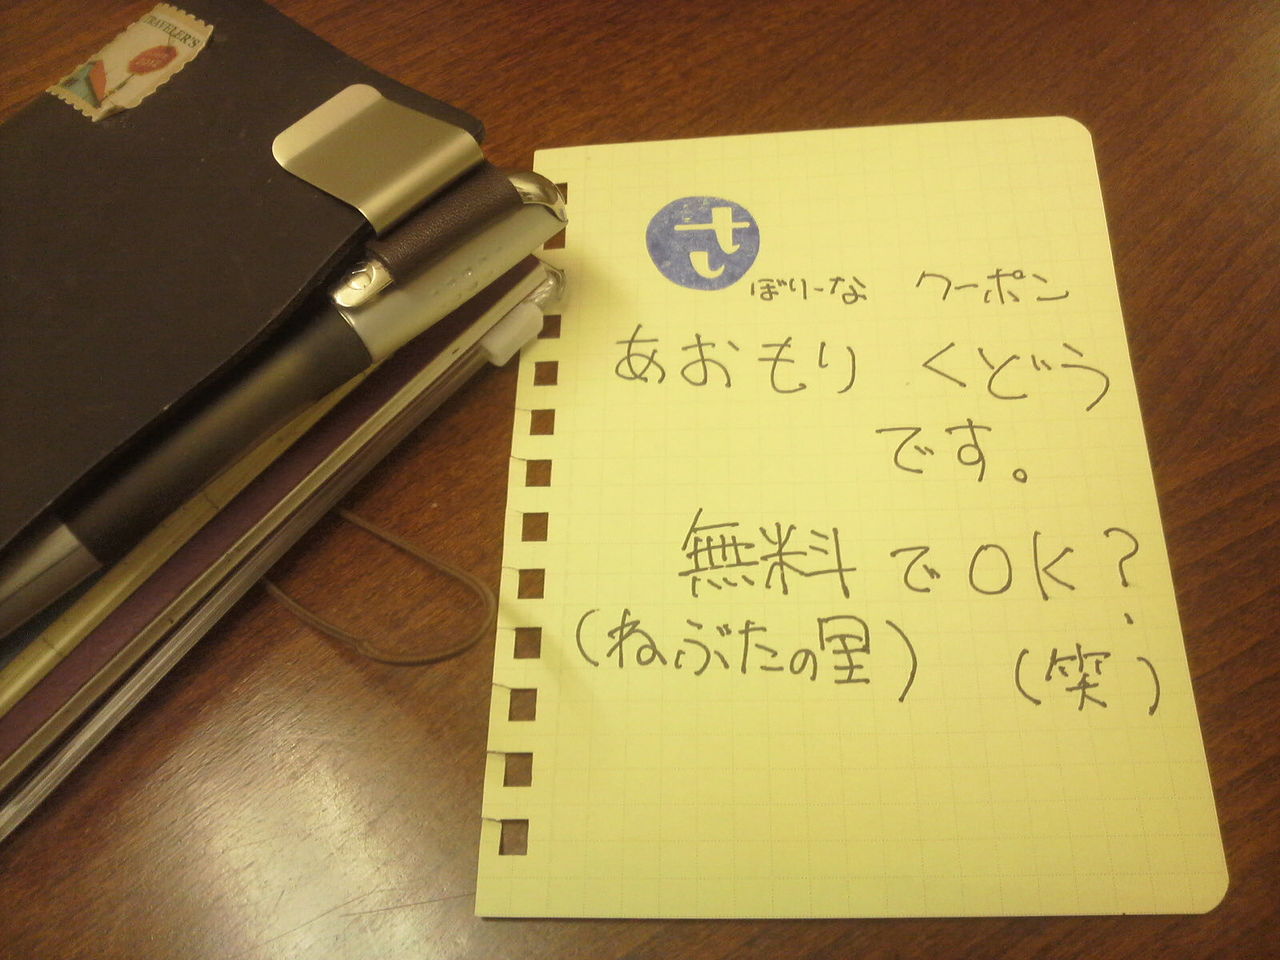 TRAVELER'S
さぼりーな クーポン
あおもり くどう
です。
無料でOK?
(ねぶたの里) (笑)